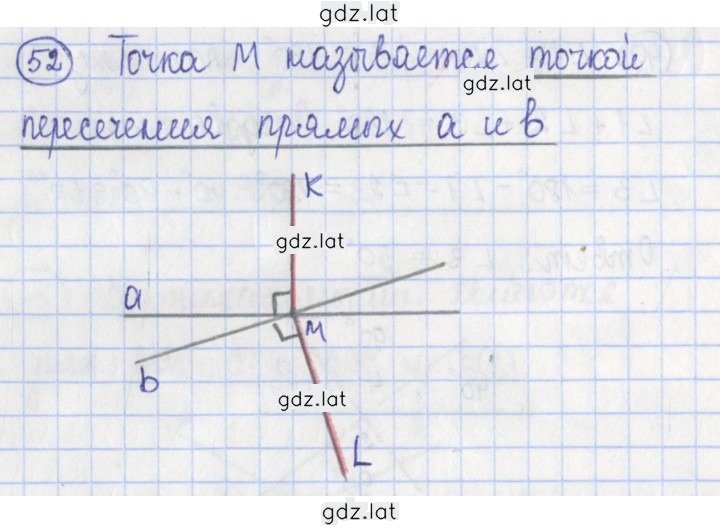 gdz.lat
52 Точка М называется точкой
gdz.lat
пересечения прямых a и b
K
gdz.lat
a
M
b
gdz.lat
L
gdz.lat